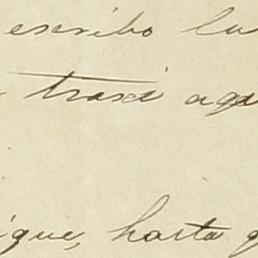 escribo la
trasé aqu
igue, hasta q